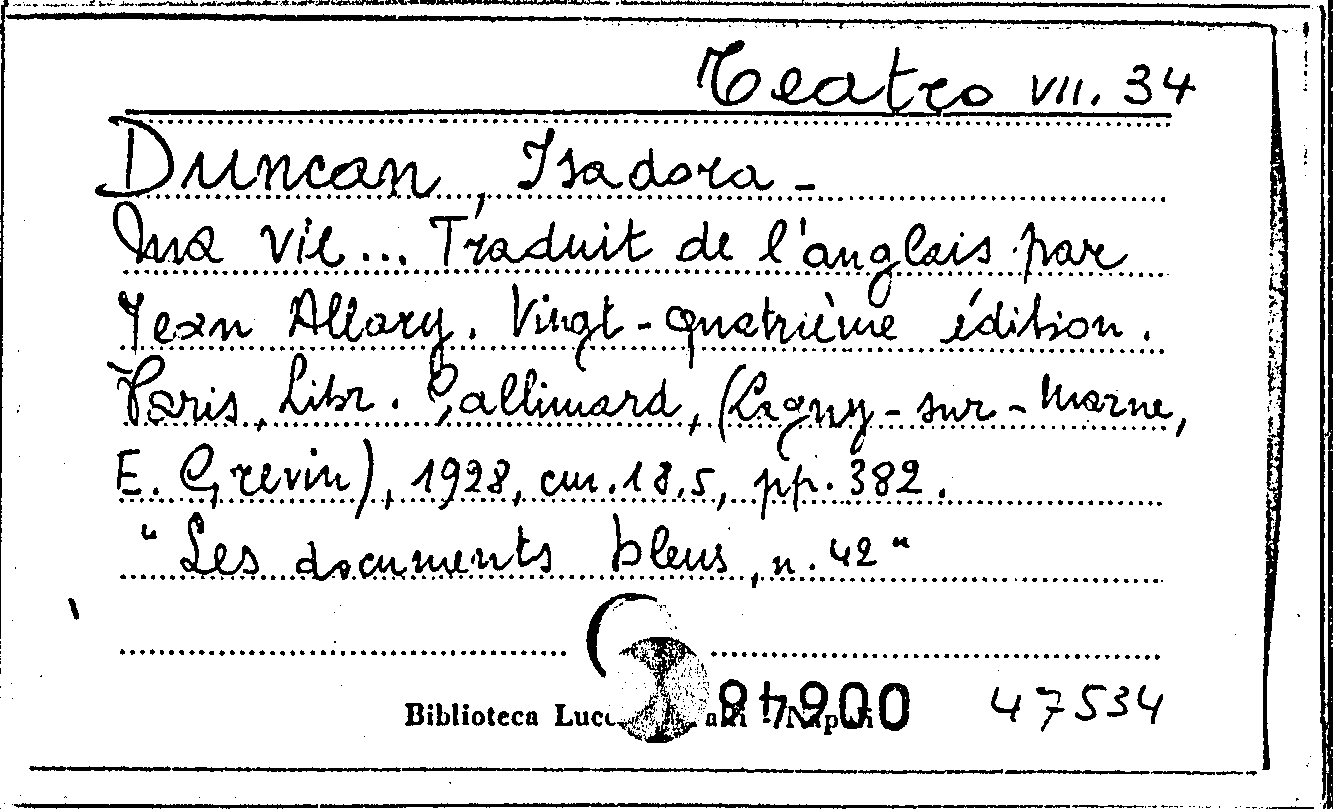 Teatro VII. 34
Duncan, Isadora -
Ma vie... Traduit de l'anglais par
Jean Allary. Vingt-quatrième édition.
Paris, Libr. Gallimard, (Lagny-sur-Marne,
E. Grevin), 1928, cm. 18,5, pp. 382.
"Les documents bleus, n. 42"
Biblioteca 47534